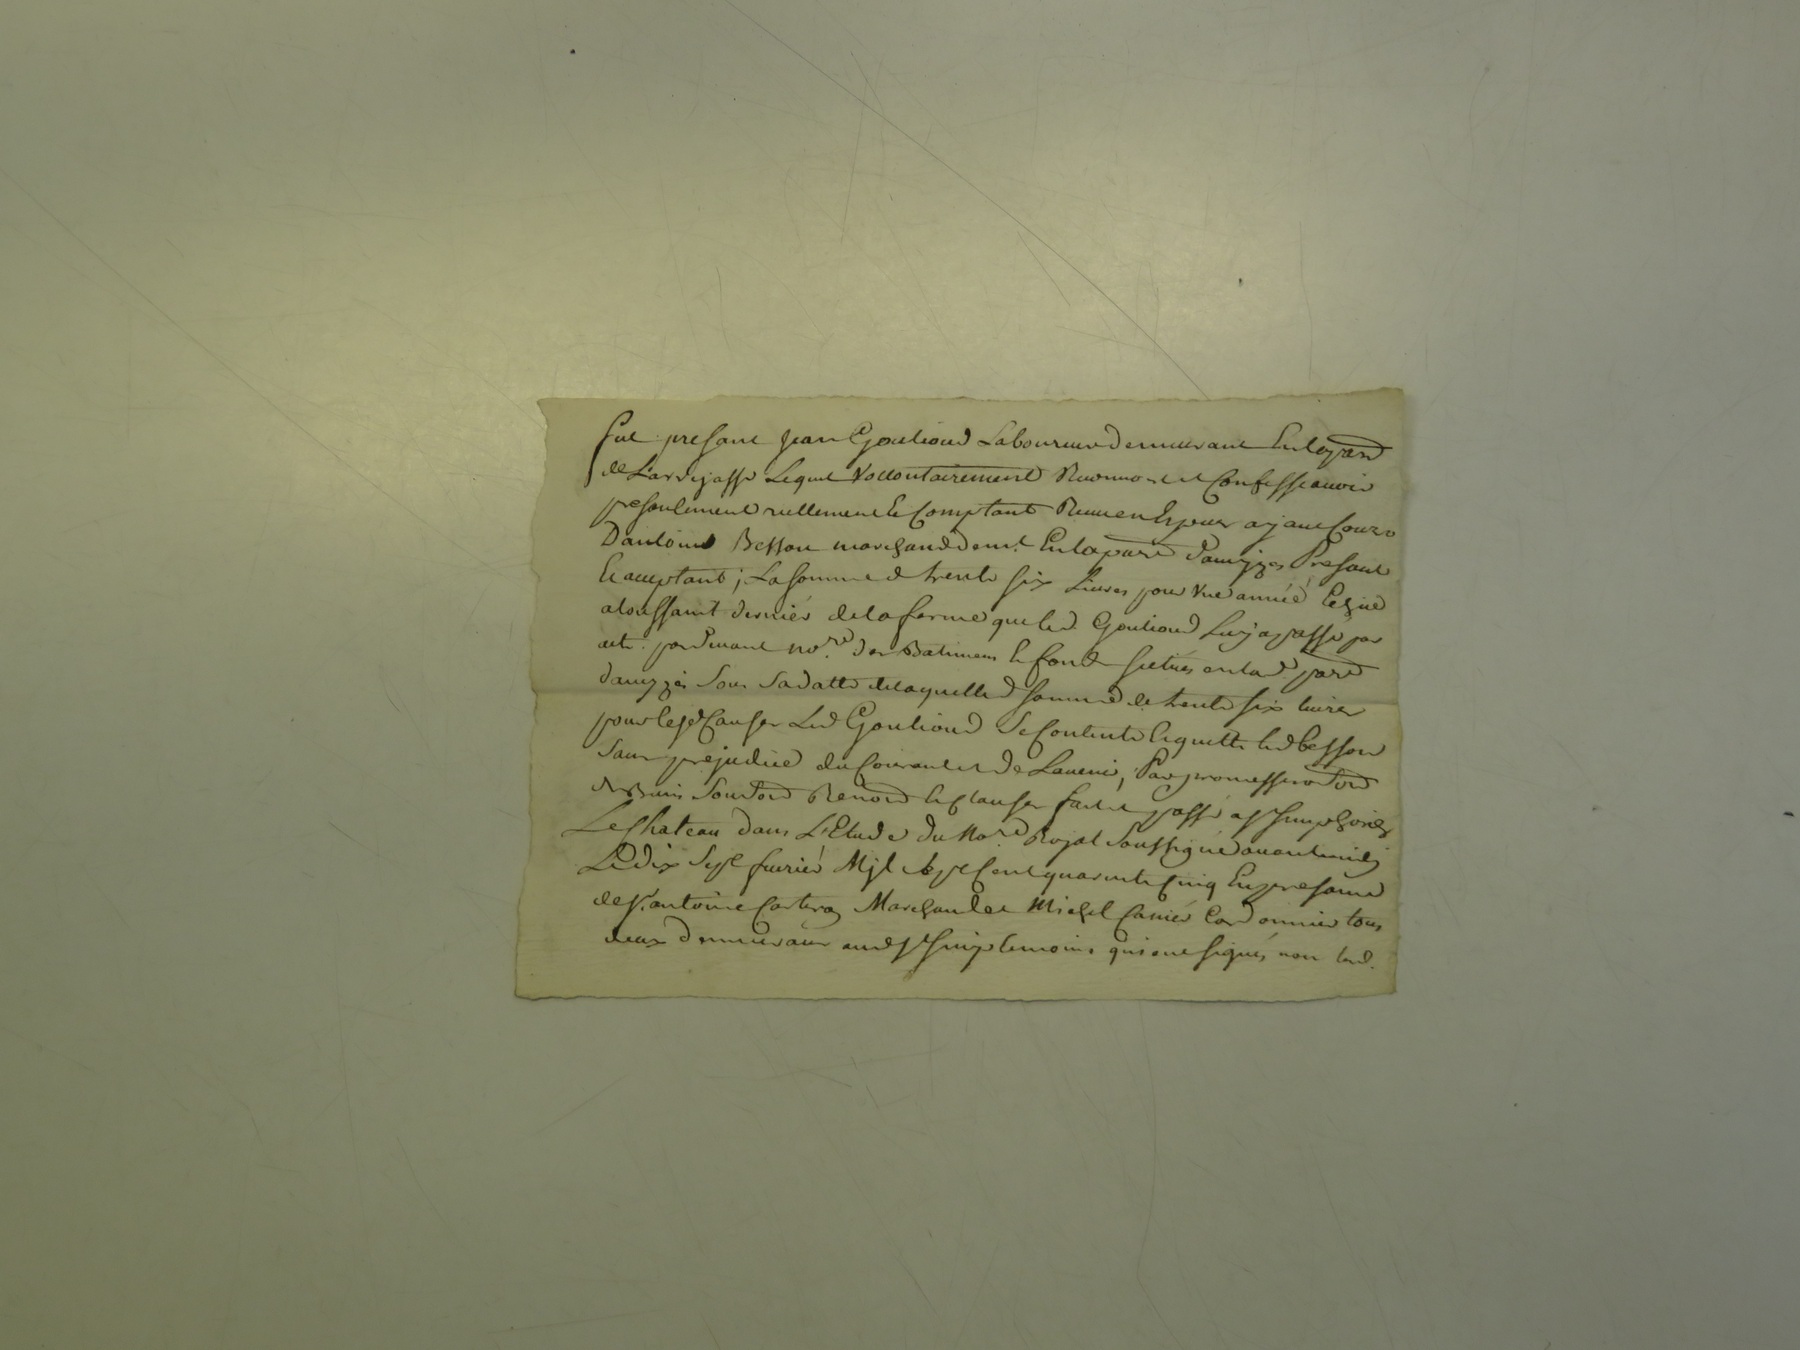 fut presant Jean Goutioud Laboureur demeurant En la par.
de L'arrejasse Lequel vollontairement Reconnoit et Confesse avoir
presentement reellement Et Comptant Receu en Espesses ayant Cours
D'antoine Besson marchand dem.t En la parr d'aueyzes Present
Et acceptant; La somme de trente six Livres pour une année Echue
a toussaint dernier de la ferme que led. Goutioud Luy a passé par
acte pardevant no.re des Batimens & fonds scitués en lad. parr.
d'aveyzes Sous Sa datte de laquelle somme de trente six livres
pour lesd Causes Led Goutioud Se Contente & quitte led besson
Sans prejudice du Courant et de L'avenir, Par promesses oblig
Soumis Renon.d & Clauses fait et passé a St Simphorien
Le Chateau dans L'Etude du No.re Royal Soussigné avant midy
Le dix Sept fevrier Mil sept Cent quarante Cinq En presance
de S.r antoine Carteron Marchand et Michel Carrier Cordonnier tous
deux demeurans aud St Simp temoins qui ont signés non led.